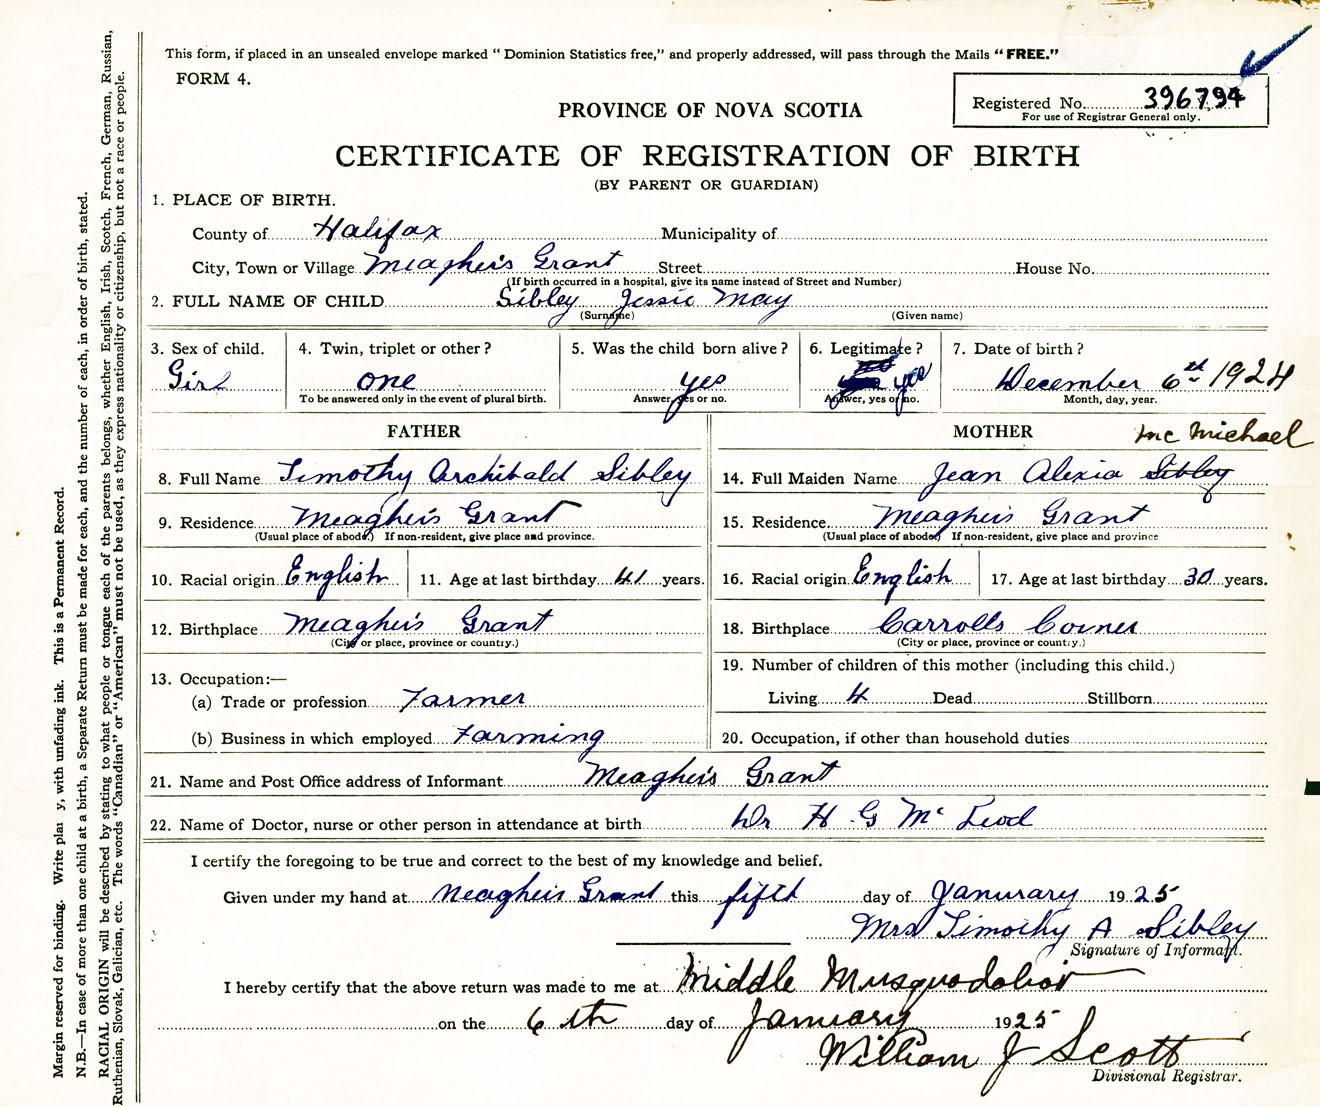 This form, if placed in an unsealed envelope marked "Dominion Statistics free," and properly addressed, will pass through the Mails "FREE."
FORM 4.
Registered No. 396794
For use of Registrar General only.
PROVINCE OF NOVA SCOTIA
CERTIFICATE OF REGISTRATION OF BIRTH
(BY PARENT OR GUARDIAN)
1. PLACE OF BIRTH.
County of Halifax Municipality of
City, Town or Village Meagher's Grant Street House No.
(If birth occurred in a hospital, give its name instead of Street and Number)
2. FULL NAME OF CHILD Sibley Jessie May
(Surname) (Given name)
3. Sex of child. 4. Twin, triplet or other? 5. Was the child born alive? 6. Legitimate? 7. Date of birth?
Girl one yes yes December 6th 1924
To be answered only in the event of plural birth. Answer, yes or no. Answer, yes or no. Month, day, year.
FATHER MOTHER Mc Michael
8. Full Name Timothy Archibald Sibley 14. Full Maiden Name Jean Alexia Sibley
9. Residence Meagher's Grant 15. Residence Meagher's Grant
(Usual place of abode) If non-resident, give place and province. (Usual place of abode) If non-resident, give place and province
10. Racial origin English 11. Age at last birthday 41 years. 16. Racial origin English 17. Age at last birthday 30 years.
12. Birthplace Meagher's Grant 18. Birthplace Carrolls Corner
(City or place, province or country.) (City or place, province or country.)
19. Number of children of this mother (including this child.)
13. Occupation:—
(a) Trade or profession Farmer Living 4 Dead Stillborn
(b) Business in which employed Farming 20. Occupation, if other than household duties
21. Name and Post Office address of Informant Meagher's Grant
22. Name of Doctor, nurse or other person in attendance at birth Dr H. G Mc Leod
I certify the foregoing to be true and correct to the best of my knowledge and belief.
Given under my hand at Meagher's Grant this fifth day of Janurary 1925
Mrs Timothy A Sibley
Signature of Informant.
I hereby certify that the above return was made to me at Middle Musquodoboit
on the 6th day of January 1925
William J Scott
Divisional Registrar.
Margin reserved for binding. Write plai y, with unfading ink. This is a Permanent Record.
N.B.—In case of more than one child at a birth, a Separate Return must be made for each, and the number of each, in order of birth, stated.
RACIAL ORIGIN will be described by stating to what people or tongue each of the parents belongs, whether English, Irish, Scotch, French, German, Russian,
Ruthenian, Slovak, Galician, etc. The words "Canadian" or "American" must not be used, as they express nationality or citizenship, but not a race or people.